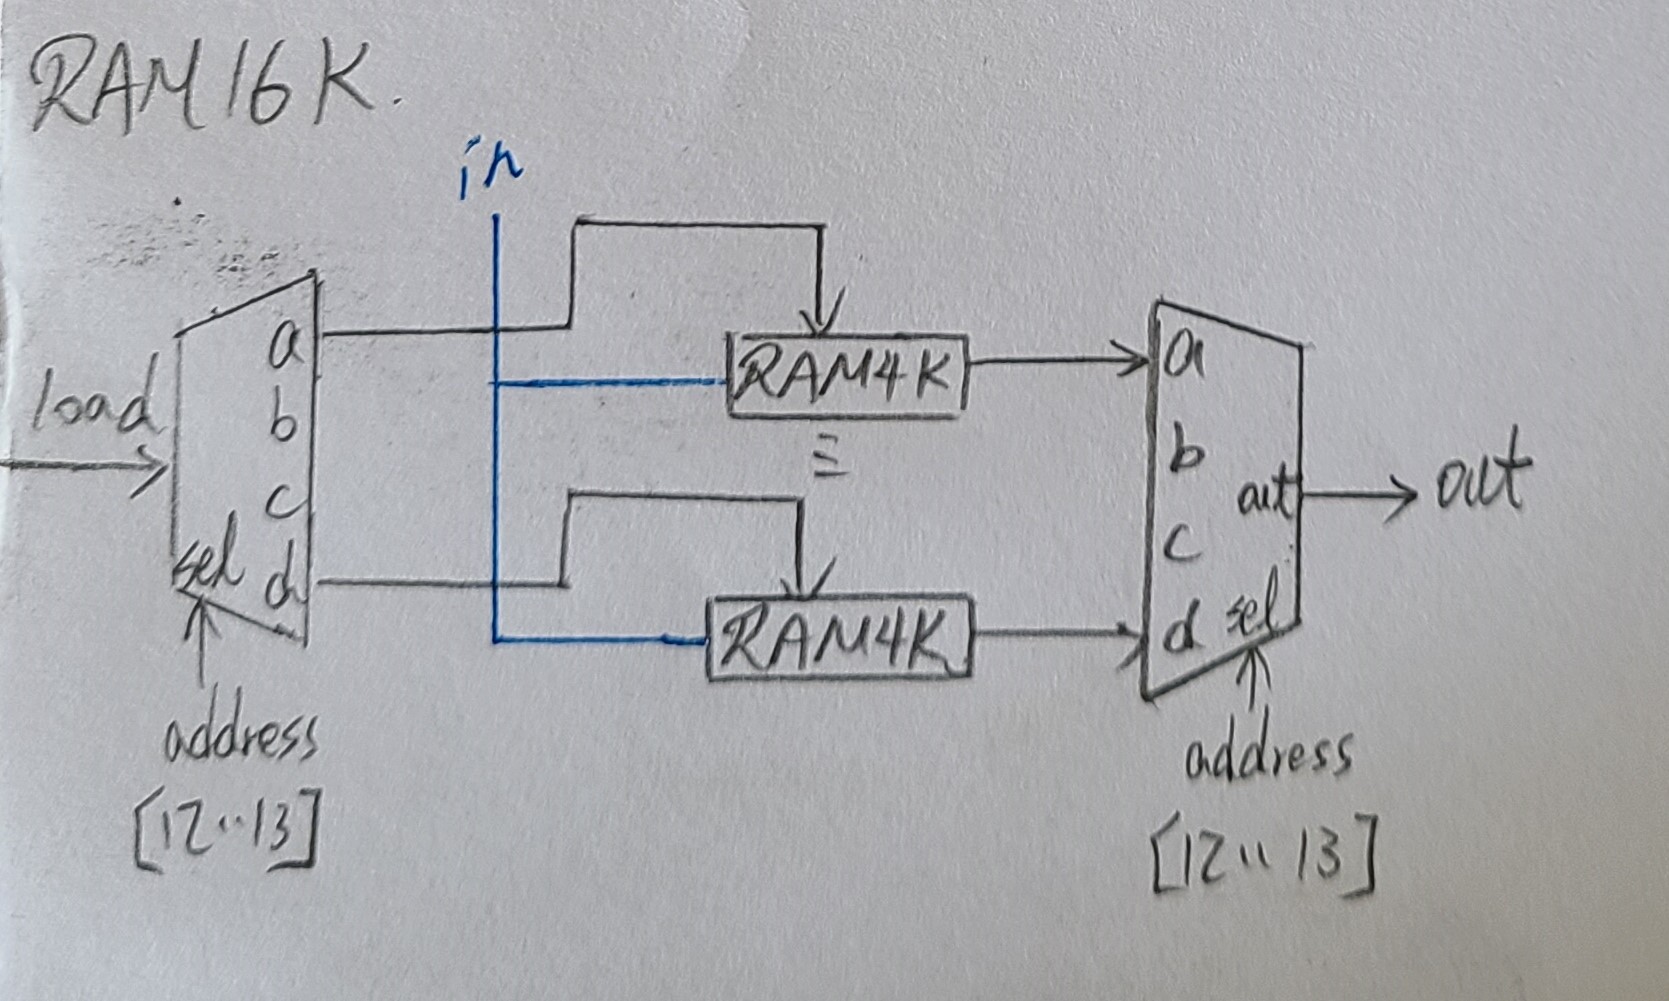 RAM16K.
in
load
a
b
c
d
sel
address
[12..13]
RAM4K
RAM4K
a
b
c
d
out
sel
out
address
[12..13]